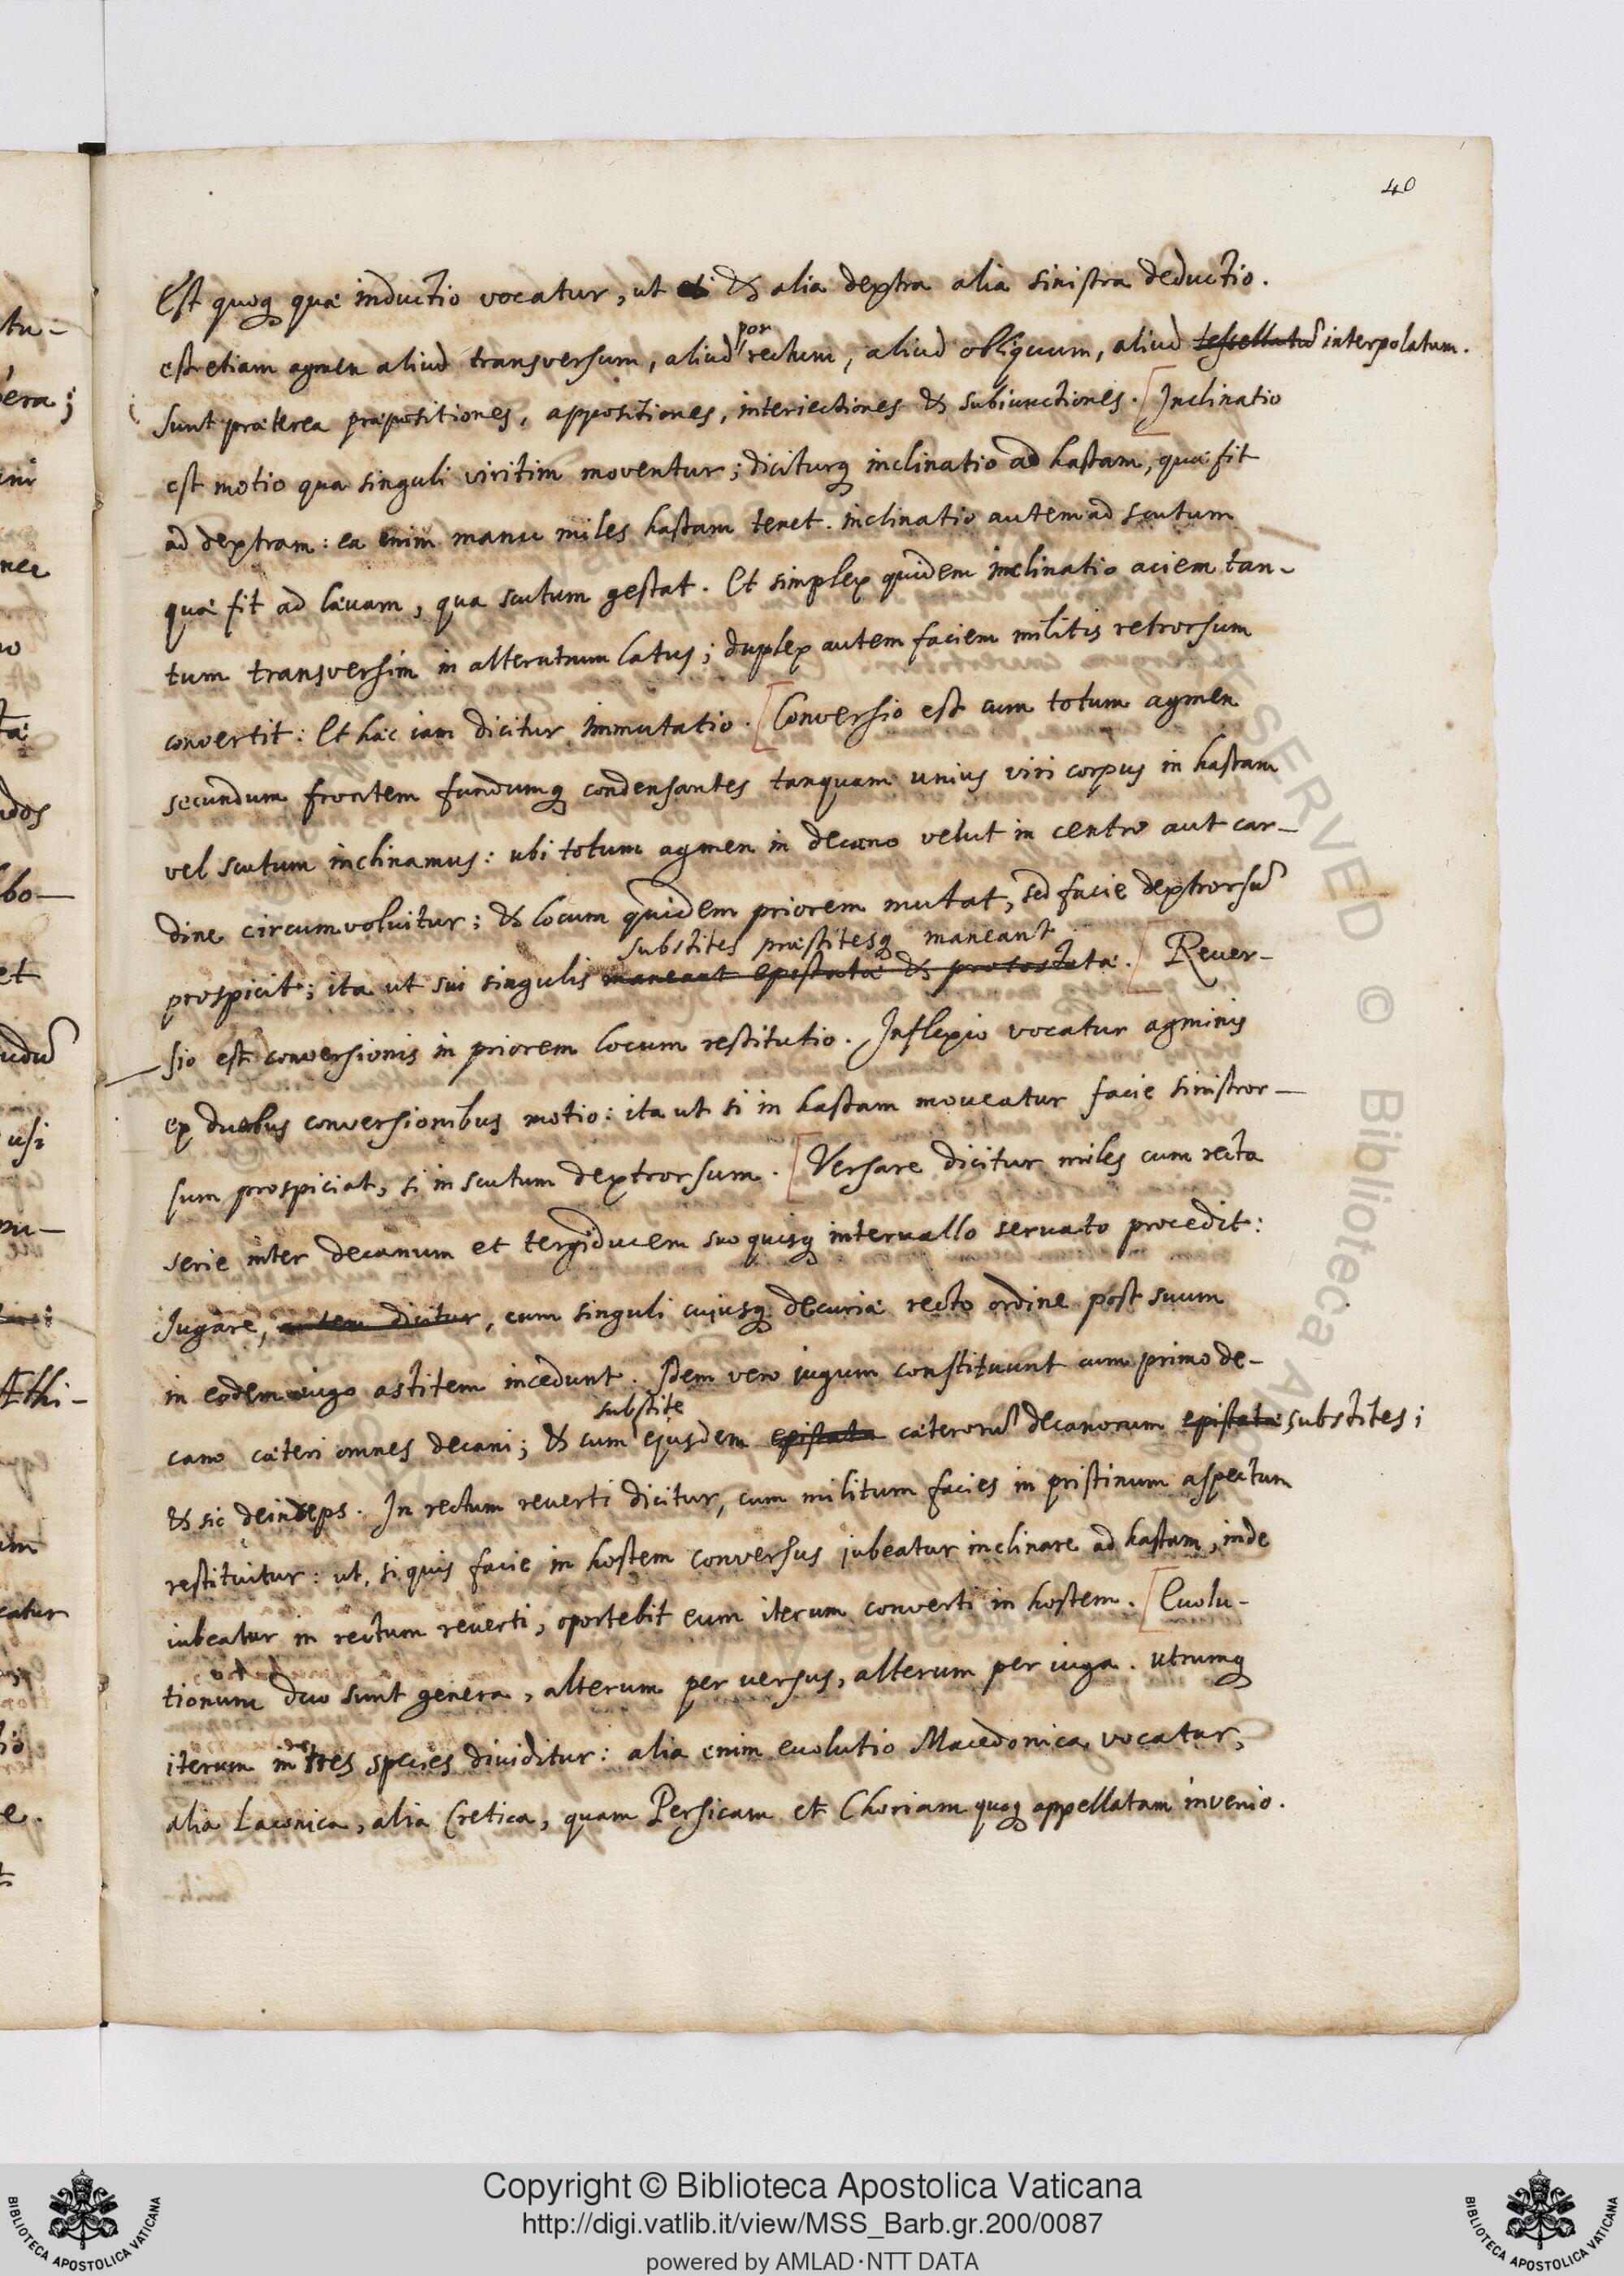 40
Est quoq; quæ inductio vocatur, ut & alia dextra alia sinistra deductio.
est etiam agmen aliud transversum, aliud porrectum, aliud obliquum, aliud tessellatũ interpolatum.
Sunt præterea præpositiones, appositiones, interiectiones & subiunctiones. [Inclinatio
est motio qua singuli viritim moventur; diciturq; inclinatio ad hastam, quæ fit
ad dextram: ea enim manu miles hastam tenet. inclinatio autem ad scutum
quæ fit ad lævam, qua scutum gestat. Et simplex quidem inclinatio aciem tan-
tum transversim in alterutrum latus; duplex autem faciem militis retrorsum
convertit: Et hæc iam dicitur Immutatio. [Conversio est cum totum agmen
secundum frontem fundumq; condensantes tanquam unius viri corpus in hastam
vel scutum inclinamus: ubi totum agmen in decano velut in centro aut car-
dine circumvolvitur; & locum quidem priorem mutat, sed facie dextrorsũ
substites præstitesq; maneant
prospicit; ita ut sui singulis maneant epistatæ & protostatæ. [Rever-
sio est conversionis in priorem locum restitutio. Inflexio vocatur agminis
ex duabus conversionibus motio: ita ut si in hastam moveatur facie sinistror-
sum prospiciat, si in scutum dextrorsum. [Versare dicitur miles cum recta
serie inter decanum et tergiducem suo quisq; intervallo servato procedit:
Jugare, autem dicitur, cum singuli cujusq; decuriæ recto ordine post suum
in eodem iugo astitem incedunt. Idem vero jugum constituunt cum primo de-
substite
cano cæteri omnes decani; & cum ejusdem epistata cæterorũ decanorum epistatæ substites;
& sic deinceps. In rectum reverti dicitur, cum militum facies in pristinum aspectum
restituitur: ut, si quis facie in hostem conversus jubeatur inclinare ad hastam, inde
iubeatur in rectum reverti, oportebit eum iterum converti in hostem. [Evolu-
tionum duo sunt genera, alterum per versus, alterum per iuga. utrumq;
iterum in tres species dividitur: alia enim evolutio Macedonica vocatur,
alia Laconica, alia Cretica, quam Persicam et Choriam quoq; appellatam invenio.
Copyright © Biblioteca Apostolica Vaticana
http://digi.vatlib.it/view/MSS_Barb.gr.200/0087
powered by AMLAD·NTT DATA
BIBLIOTECA APOSTOLICA VATICANA
BIBLIOTECA APOSTOLICA VATICANA